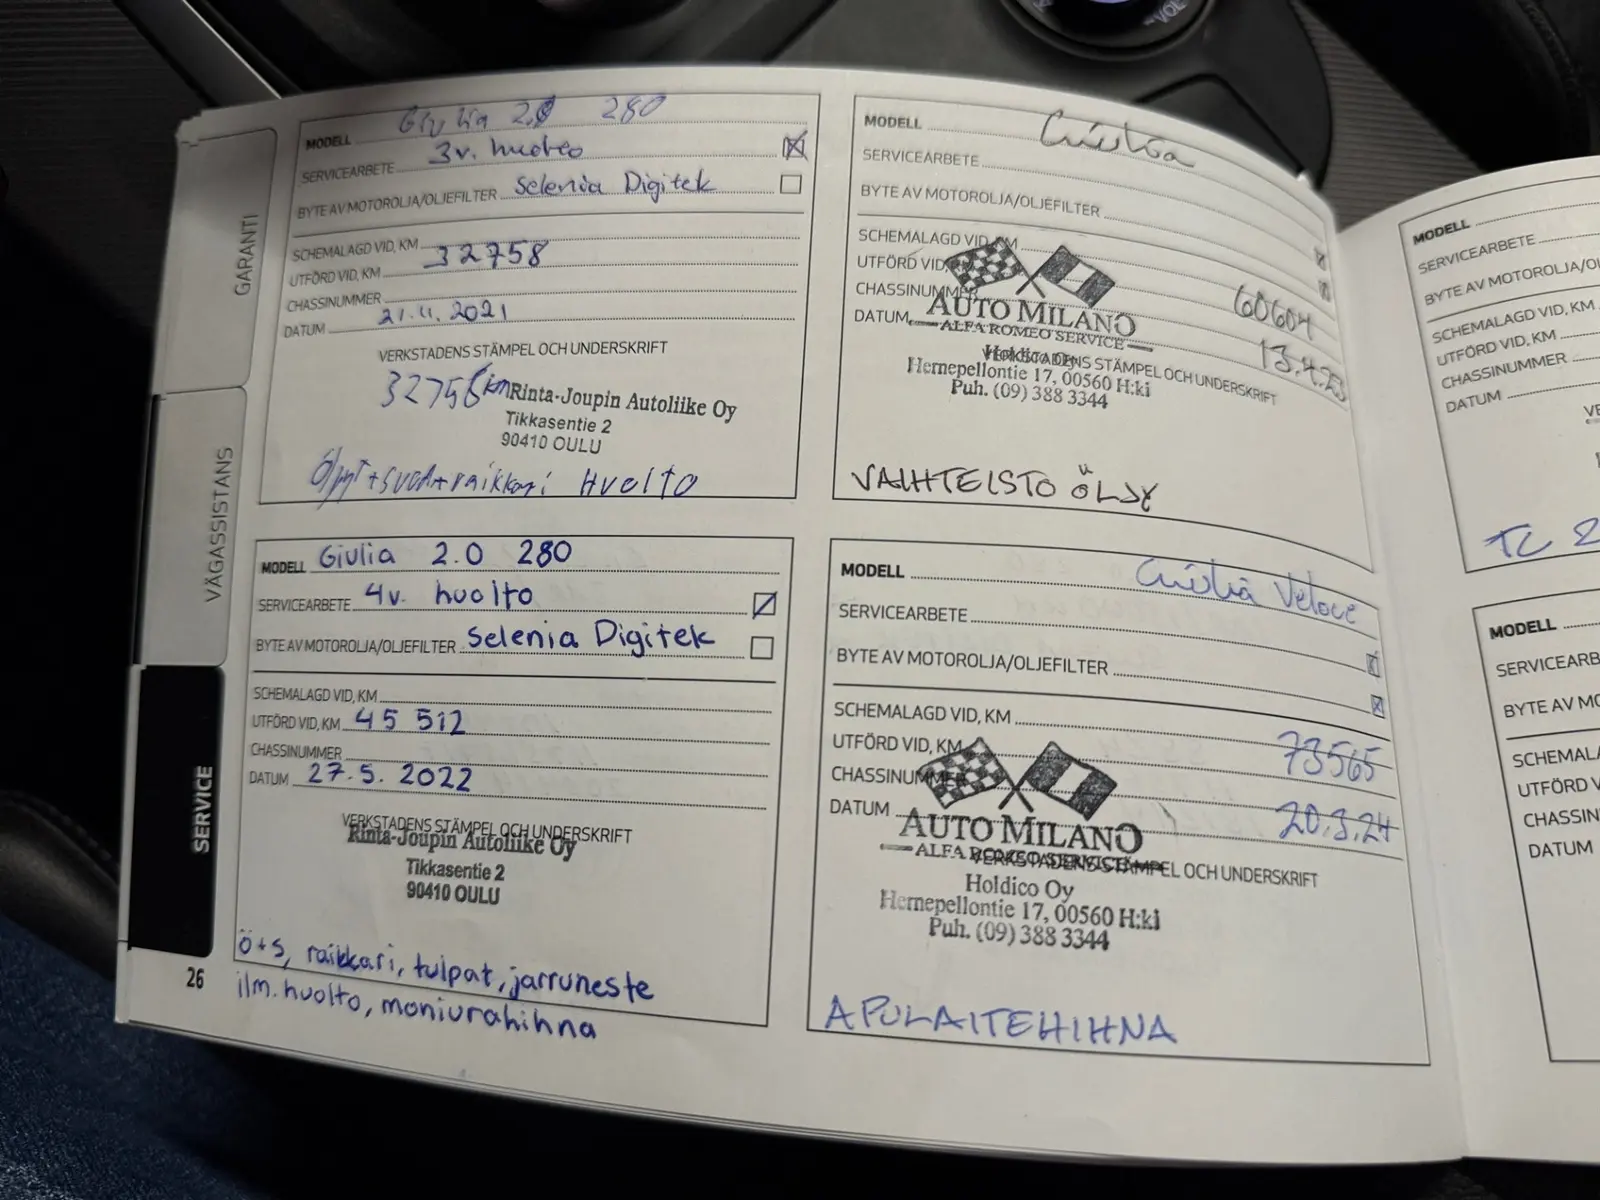 GARANTI
VÄGASSISTANS
SERVICE
26
MODELL Giulia 2.0 280
SERVICEARBETE 3v. huolto
BYTE AV MOTOROLJA/OLJEFILTER Selenia Digitek
SCHEMALAGD VID, KM
UTFÖRD VID, KM 32758
CHASSINUMMER
DATUM 21.11.2021
VERKSTADENS STÄMPEL OCH UNDERSKRIFT
32758 km Rinta-Joupin Autoliike Oy
Tikkasentie 2
90410 OULU
raikkari Huolto
MODELL Giulia 2.0 280
SERVICEARBETE 4v. huolto
BYTE AV MOTOROLJA/OLJEFILTER Selenia Digitek
SCHEMALAGD VID, KM
UTFÖRD VID, KM 45 512
CHASSINUMMER
DATUM 27.5.2022
VERKSTADENS STÄMPEL OCH UNDERSKRIFT
Rinta-Joupin Autoliike Oy
Tikkasentie 2
90410 OULU
ö+s, raikkari, tulpat, jarruneste
ilm.huolto, moniurahihna
MODELL Giulia
SERVICEARBETE
BYTE AV MOTOROLJA/OLJEFILTER
SCHEMALAGD VID, KM
UTFÖRD VID, KM 60604
CHASSINUMMER
DATUM 13.4.23
AUTO MILANO
ALFA ROMEO SERVICE
VERKSTADENS STÄMPEL OCH UNDERSKRIFT
Holdico Oy
Hernepellontie 17, 00560 H:ki
Puh. (09) 388 3344
VAIHTEISTO ÖLJY
MODELL Giulia Veloce
SERVICEARBETE
BYTE AV MOTOROLJA/OLJEFILTER
SCHEMALAGD VID, KM
UTFÖRD VID, KM 73565
CHASSINUMMER
DATUM 20.3.24
AUTO MILANO
ALFA ROMEO SERVICE
VERKSTADENS STÄMPEL OCH UNDERSKRIFT
Holdico Oy
Hernepellontie 17, 00560 H:ki
Puh. (09) 388 3344
APULAITEHIHNA
MODELL
SERVICEARBETE
BYTE AV MOTOROLJA/OL
SCHEMALAGD VID, KM
UTFÖRD VID, KM
CHASSINUMMER
DATUM
TC
MODELL
SERVICEARB
BYTE AV MO
SCHEMALA
UTFÖRD V
CHASSIN
DATUM